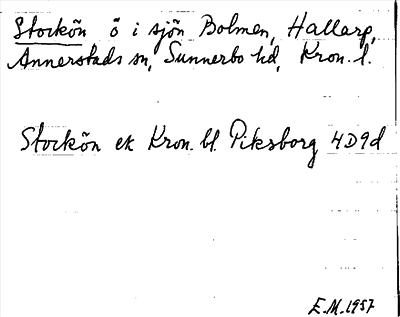 Stockön ö i sjön Bolmen, Hallarp,
Annerstads sn, Sunnerbo hd, Kron. l.
Stockön ek Kron. bl. Piksborg 4D9d
E.M. 1957